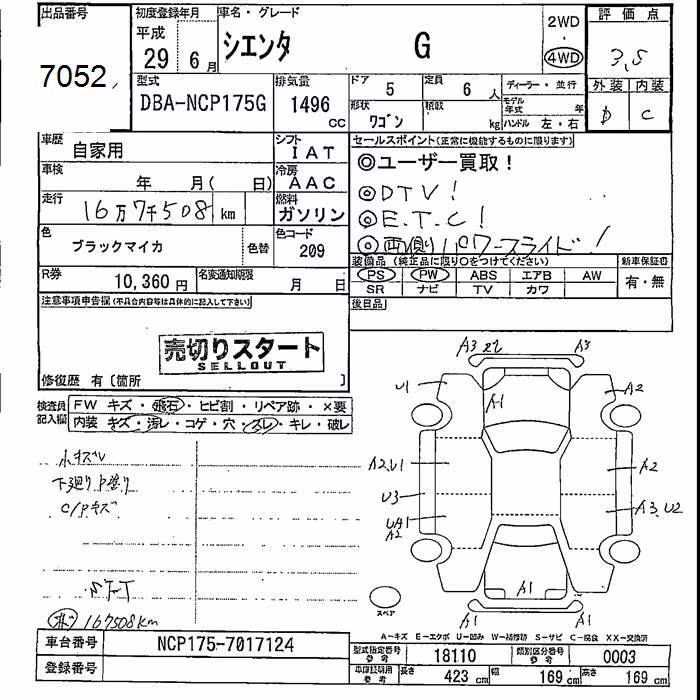 出品番号
7052
初度登録年月
平成
29 6月
車名・グレード
シエンタ G
2WD
・
4WD
評価点
3.5
外装 内装
D C
型式
DBA-NCP175G
排気量
1496 CC
ドア 5
定員 6 人
形状 ワゴン
積載 kg
ディーラー・並行
モデル年式 年
ハンドル 左・右
車歴 自家用
シフト IAT
車検 年 月( 日)
冷房 AAC
走行 16万7千508 km
燃料 ガソリン
色 ブラックマイカ 色替
色コード 209
R券 10,360円
名変通知期限 月 日
セールスポイント(正常に機能するものに限ります)
◎ユーザー買取!
◎DTV!
◎E.T.C!
◎両側パワースライド!
装備品(純正品に限り○をつけてください)
PS PW ABS エアB AW
SR ナビ TV カワ
新車保証書
有・無
後日品
注意事項申告欄(不具合内容等は具体的に記入して下さい)
売切りスタート
SELLOUT
修復歴 有〔箇所 〕
検査員記入欄
FW キズ・飛石・ヒビ割・リペア跡・×要
内装 キズ・汚レ・コゲ・穴・スレ・キレ・破レ
小キズU
下廻りP塗り
C/Pキズ
167508km
A3
A3
U1
A2
A1
A2,U1
A2
U3
A3,U2
UA1
A2
A1
A1
A1
スペア
A―キズ E―エクボ U―凹み W―補修跡 S―サビ C―腐食 XX―交換済
車台番号 NCP175-7017124
登録番号
型式指定番号 参考 18110
類別区分番号 参考 0003
車庫証明用 参考 長さ 423 cm 幅 169 cm 高さ 169 cm